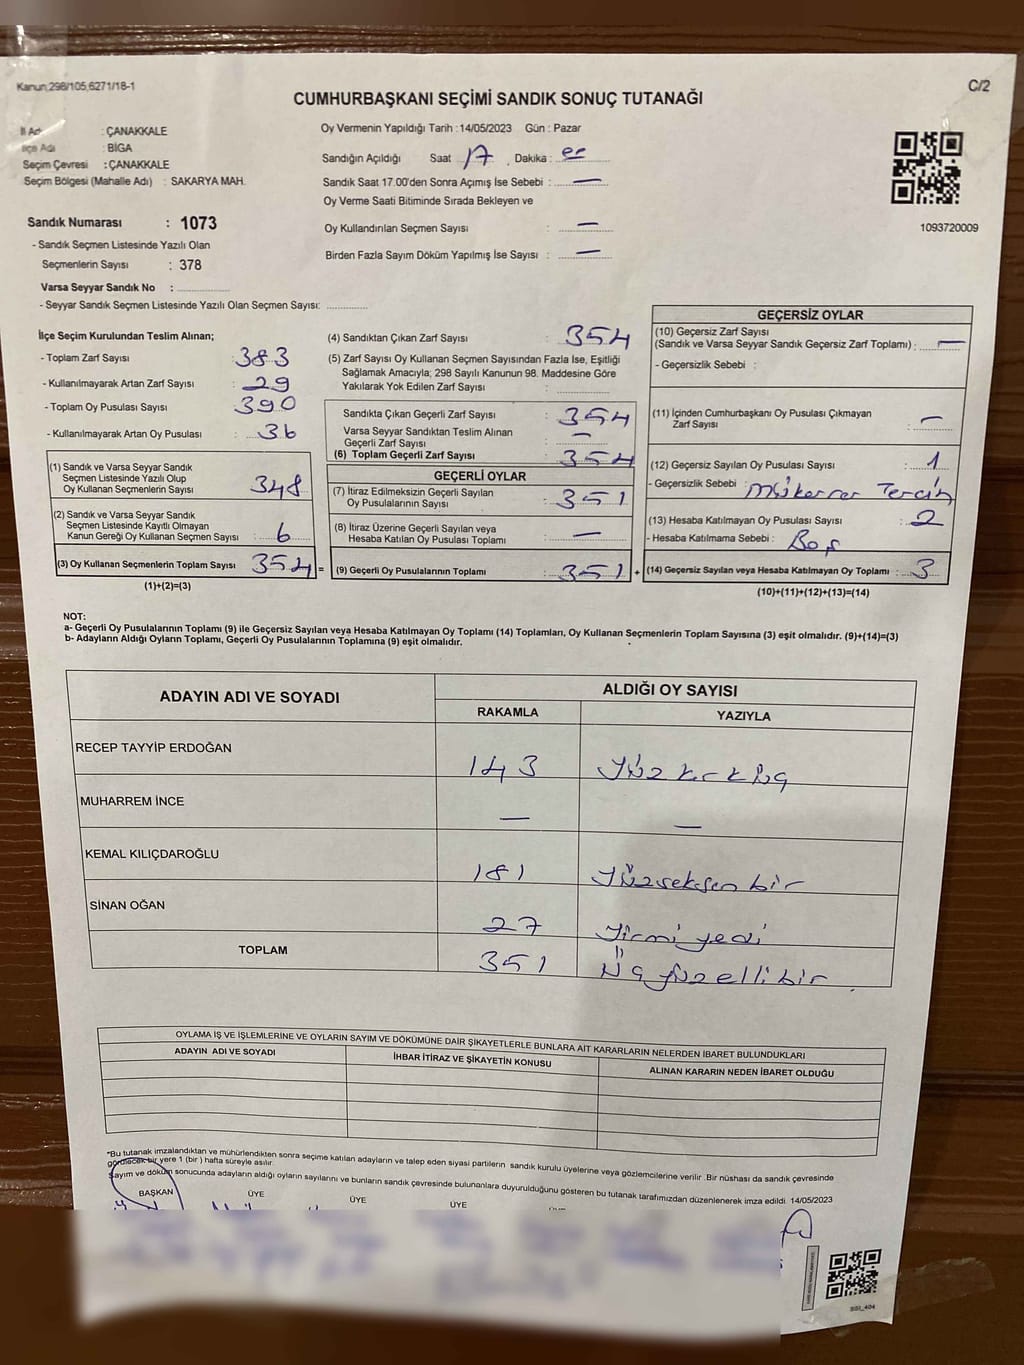 Kanun;298/105,6271/18-1
C/2
CUMHURBAŞKANI SEÇİMİ SANDIK SONUÇ TUTANAĞI
İl Adı : ÇANAKKALE
İlçe Adı : BİGA
Seçim Çevresi : ÇANAKKALE
Seçim Bölgesi (Mahalle Adı) : SAKARYA MAH.
Sandık Numarası : 1073
- Sandık Seçmen Listesinde Yazılı Olan
Seçmenlerin Sayısı : 378
Varsa Seyyar Sandık No :
- Seyyar Sandık Seçmen Listesinde Yazılı Olan Seçmen Sayısı:
Oy Vermenin Yapıldığı Tarih :14/05/2023 Gün : Pazar
Sandığın Açıldığı Saat 17 , Dakika :
Sandık Saat 17.00'den Sonra Açımış İse Sebebi : —
Oy Verme Saati Bitiminde Sırada Bekleyen ve
Oy Kullandırılan Seçmen Sayısı : —
Birden Fazla Sayım Döküm Yapılmış İse Sayısı : —
1093720009
İlçe Seçim Kurulundan Teslim Alınan;
- Toplam Zarf Sayısı : 383
- Kullanılmayarak Artan Zarf Sayısı : 29
- Toplam Oy Pusulası Sayısı : 390
- Kullanılmayarak Artan Oy Pusulası : 36
(1) Sandık ve Varsa Seyyar Sandık
Seçmen Listesinde Yazılı Olup
Oy Kullanan Seçmenlerin Sayısı : 348
(2) Sandık ve Varsa Seyyar Sandık
Seçmen Listesinde Kayıtlı Olmayan
Kanun Gereği Oy Kullanan Seçmen Sayısı : 6
(3) Oy Kullanan Seçmenlerin Toplam Sayısı : 354 =
(1)+(2)=(3)
(4) Sandıktan Çıkan Zarf Sayısı : 354
(5) Zarf Sayısı Oy Kullanan Seçmen Sayısından Fazla İse, Eşitliği
Sağlamak Amacıyla; 298 Sayılı Kanunun 98. Maddesine Göre
Yakılarak Yok Edilen Zarf Sayısı :
Sandıkta Çıkan Geçerli Zarf Sayısı : 354
Varsa Seyyar Sandıktan Teslim Alınan
Geçerli Zarf Sayısı : —
(6) Toplam Geçerli Zarf Sayısı : 354
GEÇERLİ OYLAR
(7) İtiraz Edilmeksizin Geçerli Sayılan
Oy Pusulalarının Sayısı : 351
(8) İtiraz Üzerine Geçerli Sayılan veya
Hesaba Katılan Oy Pusulası Toplamı : —
(9) Geçerli Oy Pusulalarının Toplamı : 351 +
GEÇERSİZ OYLAR
(10) Geçersiz Zarf Sayısı
(Sandık ve Varsa Seyyar Sandık Geçersiz Zarf Toplamı) : —
- Geçersizlik Sebebi :
(11) İçinden Cumhurbaşkanı Oy Pusulası Çıkmayan
Zarf Sayısı : —
(12) Geçersiz Sayılan Oy Pusulası Sayısı : 1
- Geçersizlik Sebebi : Mükerrer Tercih
(13) Hesaba Katılmayan Oy Pusulası Sayısı : 2
- Hesaba Katılmama Sebebi : Boş
(14) Geçersiz Sayılan veya Hesaba Katılmayan Oy Toplamı : 3
(10)+(11)+(12)+(13)=(14)
NOT:
a- Geçerli Oy Pusulalarının Toplamı (9) ile Geçersiz Sayılan veya Hesaba Katılmayan Oy Toplamı (14) Toplamları, Oy Kullanan Seçmenlerin Toplam Sayısına (3) eşit olmalıdır. (9)+(14)=(3)
b- Adayların Aldığı Oyların Toplamı, Geçerli Oy Pusulalarının Toplamına (9) eşit olmalıdır.
ADAYIN ADI VE SOYADI ALDIĞI OY SAYISI
RAKAMLA YAZIYLA
RECEP TAYYİP ERDOĞAN 143 Yüz kırk üç
MUHARREM İNCE — —
KEMAL KILIÇDAROĞLU 181 Yüzseksen bir
SİNAN OĞAN 27 Yirmi yedi
TOPLAM 351 Üç yüz elli bir
OYLAMA İŞ VE İŞLEMLERİNE VE OYLARIN SAYIM VE DÖKÜMÜNE DAİR ŞİKAYETLERLE BUNLARA AİT KARARLARIN NELERDEN İBARET BULUNDUKLARI
ADAYIN ADI VE SOYADI İHBAR İTİRAZ VE ŞİKAYETİN KONUSU ALINAN KARARIN NEDEN İBARET OLDUĞU
*Bu tutanak imzalandıktan ve mühürlendikten sonra seçime katılan adayların ve talep eden siyasi partilerin sandık kurulu üyelerine veya gözlemcilerine verilir .Bir nüshası da sandık çevresinde
görülecek bir yere 1 (bir ) hafta süreyle asılır.
Sayım ve döküm sonucunda adayların aldığı oyların sayılarını ve bunların sandık çevresinde bulunanlara duyurulduğunu gösteren bu tutanak tarafımızdan düzenlenerek imza edildi. 14/05/2023
BAŞKAN ÜYE ÜYE ÜYE
SSI_404